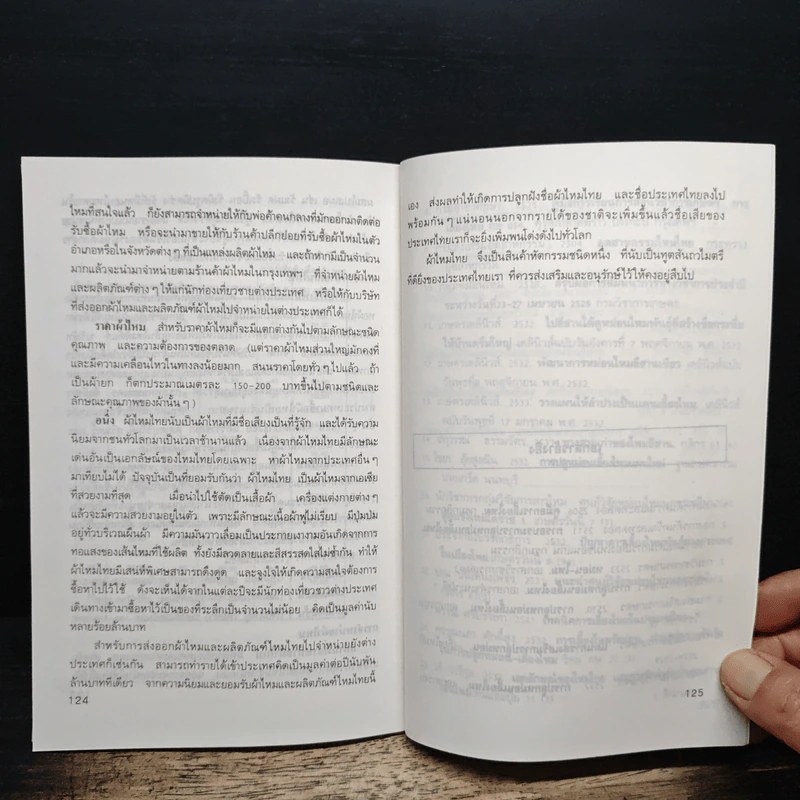 ไหมที่สนใจแล้ว ก็ยังสามารถจำหน่ายให้กับพ่อค้าคนกลางที่มักออกมาติดต่อ
รับซื้อผ้าไหม หรือจะนำมาขายให้กับร้านค้าปลีกย่อยที่รับซื้อผ้าไหมในตัว
อำเภอหรือในจังหวัดต่าง ๆ ที่เป็นแหล่งผลิตผ้าไหม และถ้าหากมีเป็นจำนวน
มากแล้วจะนำมาจำหน่ายตามร้านค้าผ้าไหมในกรุงเทพฯ ที่จำหน่ายผ้าไหม
และผลิตภัณฑ์ต่าง ๆ ให้แก่นักท่องเที่ยวชายต่างประเทศ หรือให้กับบริษัท
ที่ส่งออกผ้าไหมและผลิตภัณฑ์ผ้าไหมไปจำหน่ายในต่างประเทศก็ได้
ราคาผ้าไหม สำหรับราคาผ้าไหมก็จะมีแตกต่างกันไปตามลักษณะชนิด
คุณภาพ และความต้องการของตลาด (แต่ราคาผ้าไหมส่วนใหญ่มักคงที่
และมีความเคลื่อนไหวในทางลงน้อยมาก สนนราคาโดยทั่ว ๆ ไปแล้ว ถ้า
เป็นผ้ายก ก็ตกประมาณเมตรละ 150-200 บาทขึ้นไปตามชนิดและ
ลักษณะคุณภาพของผ้านั้น ๆ)
อนึ่ง ผ้าไหมไทยนับเป็นผ้าไหมที่มีชื่อเสียงเป็นที่รู้จัก และได้รับความ
นิยมจากชนทั่วโลกมาเป็นเวลาช้านานแล้ว เนื่องจากผ้าไหมไทยมีลักษณะ
เด่นอันเป็นเอกลักษณ์ของไหมไทยโดยเฉพาะ หาผ้าไหมจากประเทศอื่น ๆ
มาเทียบไม่ได้ ปัจจุบันเป็นที่ยอมรับกันว่า ผ้าไหมไทย เป็นผ้าไหมจากเอเซีย
ที่สวยงามที่สุด เมื่อนำไปใช้ตัดเป็นเสื้อผ้า เครื่องแต่งกายต่าง ๆ
แล้วจะมีความสวยงามอยู่ในตัว เพราะมีลักษณะเนื้อผ้าฟูไม่เรียบ มีปุ่มปม
อยู่ทั่วบริเวณผืนผ้า มีความมันวาวเลื่อมเป็นประกายเงางามอันเกิดจากการ
ทอแสงของเส้นไหมที่ใช้ผลิต ทั้งยังมีลวดลายและสีสรรสดใสไม่ซ้ำกัน ทำให้
ผ้าไหมไทยมีเสน่ห์พิเศษสามารถดึงดูด และจูงใจให้เกิดความสนใจต้องการ
ซื้อหาไปไว้ใช้ ดังจะเห็นได้จากในแต่ละปีจะมีนักท่องเที่ยวชาวต่างประเทศ
เดินทางเข้ามาซื้อหาไว้เป็นของที่ระลึกเป็นจำนวนไม่น้อย คิดเป็นมูลค่านับ
หลายร้อยล้านบาท
สำหรับการส่งออกผ้าไหมและผลิตภัณฑ์ไหมไทยไปจำหน่ายยังต่าง
ประเทศก็เช่นกัน สามารถทำรายได้เข้าประเทศคิดเป็นมูลค่าต่อปีนับพัน
ล้านบาททีเดียว จากความนิยมและยอมรับผ้าไหมและผลิตภัณฑ์ไหมไทยนี้
124
เอง ส่งผลทำให้เกิดการปลูกฝังชื่อผ้าไหมไทย และชื่อประเทศไทยลงไป
พร้อมกัน ๆ แน่นอนนอกจากรายได้ของชาติจะเพิ่มขึ้นแล้วชื่อเสียของ
ประเทศไทยเราก็จะยิ่งเพิ่มพนโด่งดังไปทั่วโลก
ผ้าไหมไทย จึงเป็นสินค้าหัตถกรรมชนิดหนึ่ง ที่นับเป็นทูตสันถวไมตรี
ที่ดียิ่งของประเทศไทยเรา ที่ควรส่งเสริมและอนุรักษ์ไว้ให้คงอยู่สืบไป
125